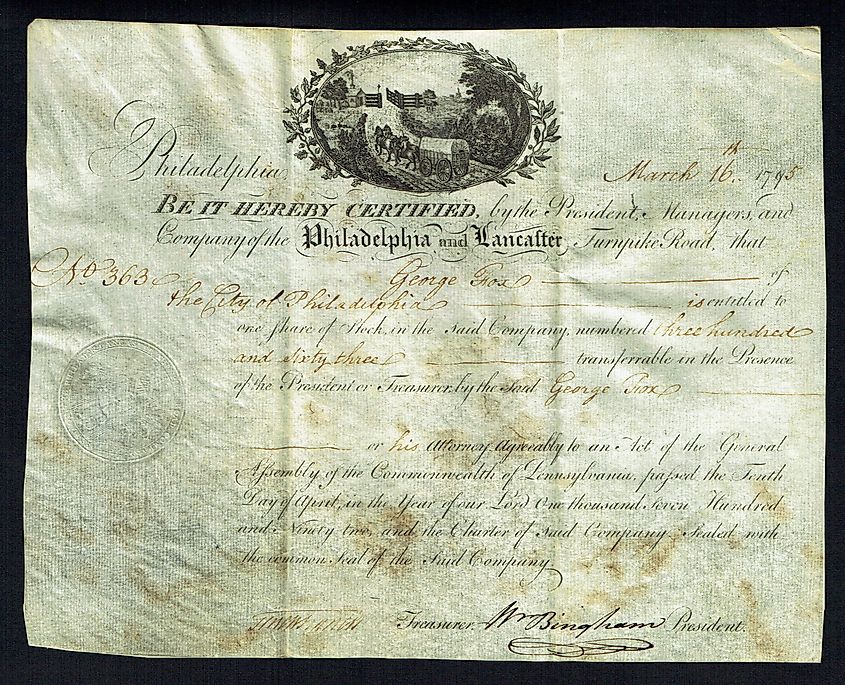 Philadelphia, March 16.th 1795
BE IT HEREBY CERTIFIED, by the President, Managers, and
Company of the Philadelphia and Lancaster Turnpike Road, that
No 363 George Fox of
the City of Philadelphia is entitled to
one Share of Stock, in the said Company, numbered three hundred
and sixty three transferrable in the Presence
of the President or Treasurer, by the said George Fox
or his Attorney, Agreeably to an Act of the General
Assembly of the Commonwealth of Pennsylvania, passed the Tenth
Day of April, in the Year of our Lord One thousand Seven Hundred
and Ninety two, and the Charter of said Company, Sealed with
the common Seal of the Said Company.
Treasurer. Wm Bingham President.